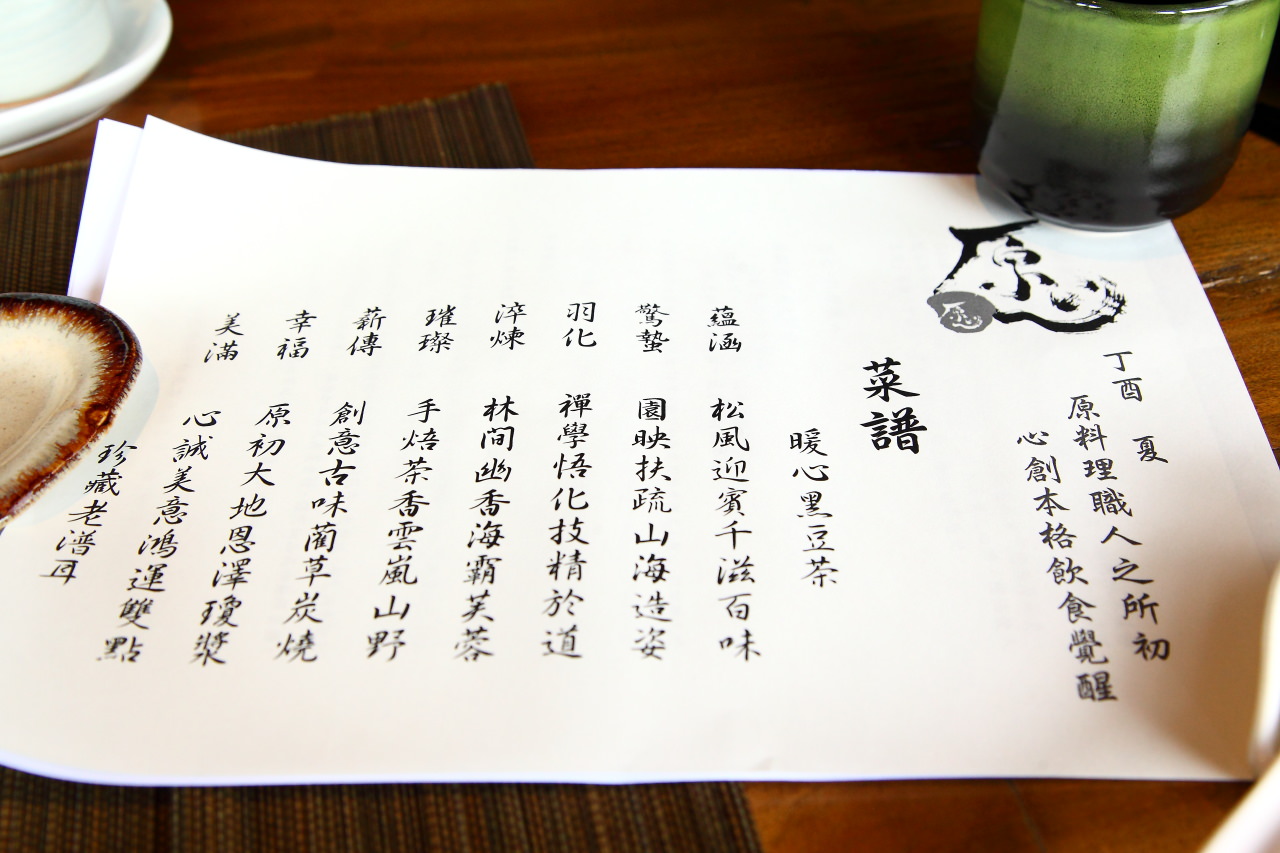 原心
丁酉 夏
原料理職人之所初
心創本格飲食覺醒
菜譜
暖心黑豆茶
蘊涵 松風迎賓千滋百味
驚蟄 園映扶疏山海造姿
羽化 禪學悟化技精於道
淬煉 林間幽香海霸芙蓉
璀璨 手焙茶香雲嵐山野
薪傳 創意古味藺草炭燒
幸福 原初大地恩澤瓊漿
美滿 心誠美意鴻運雙點
珍藏老潽耳